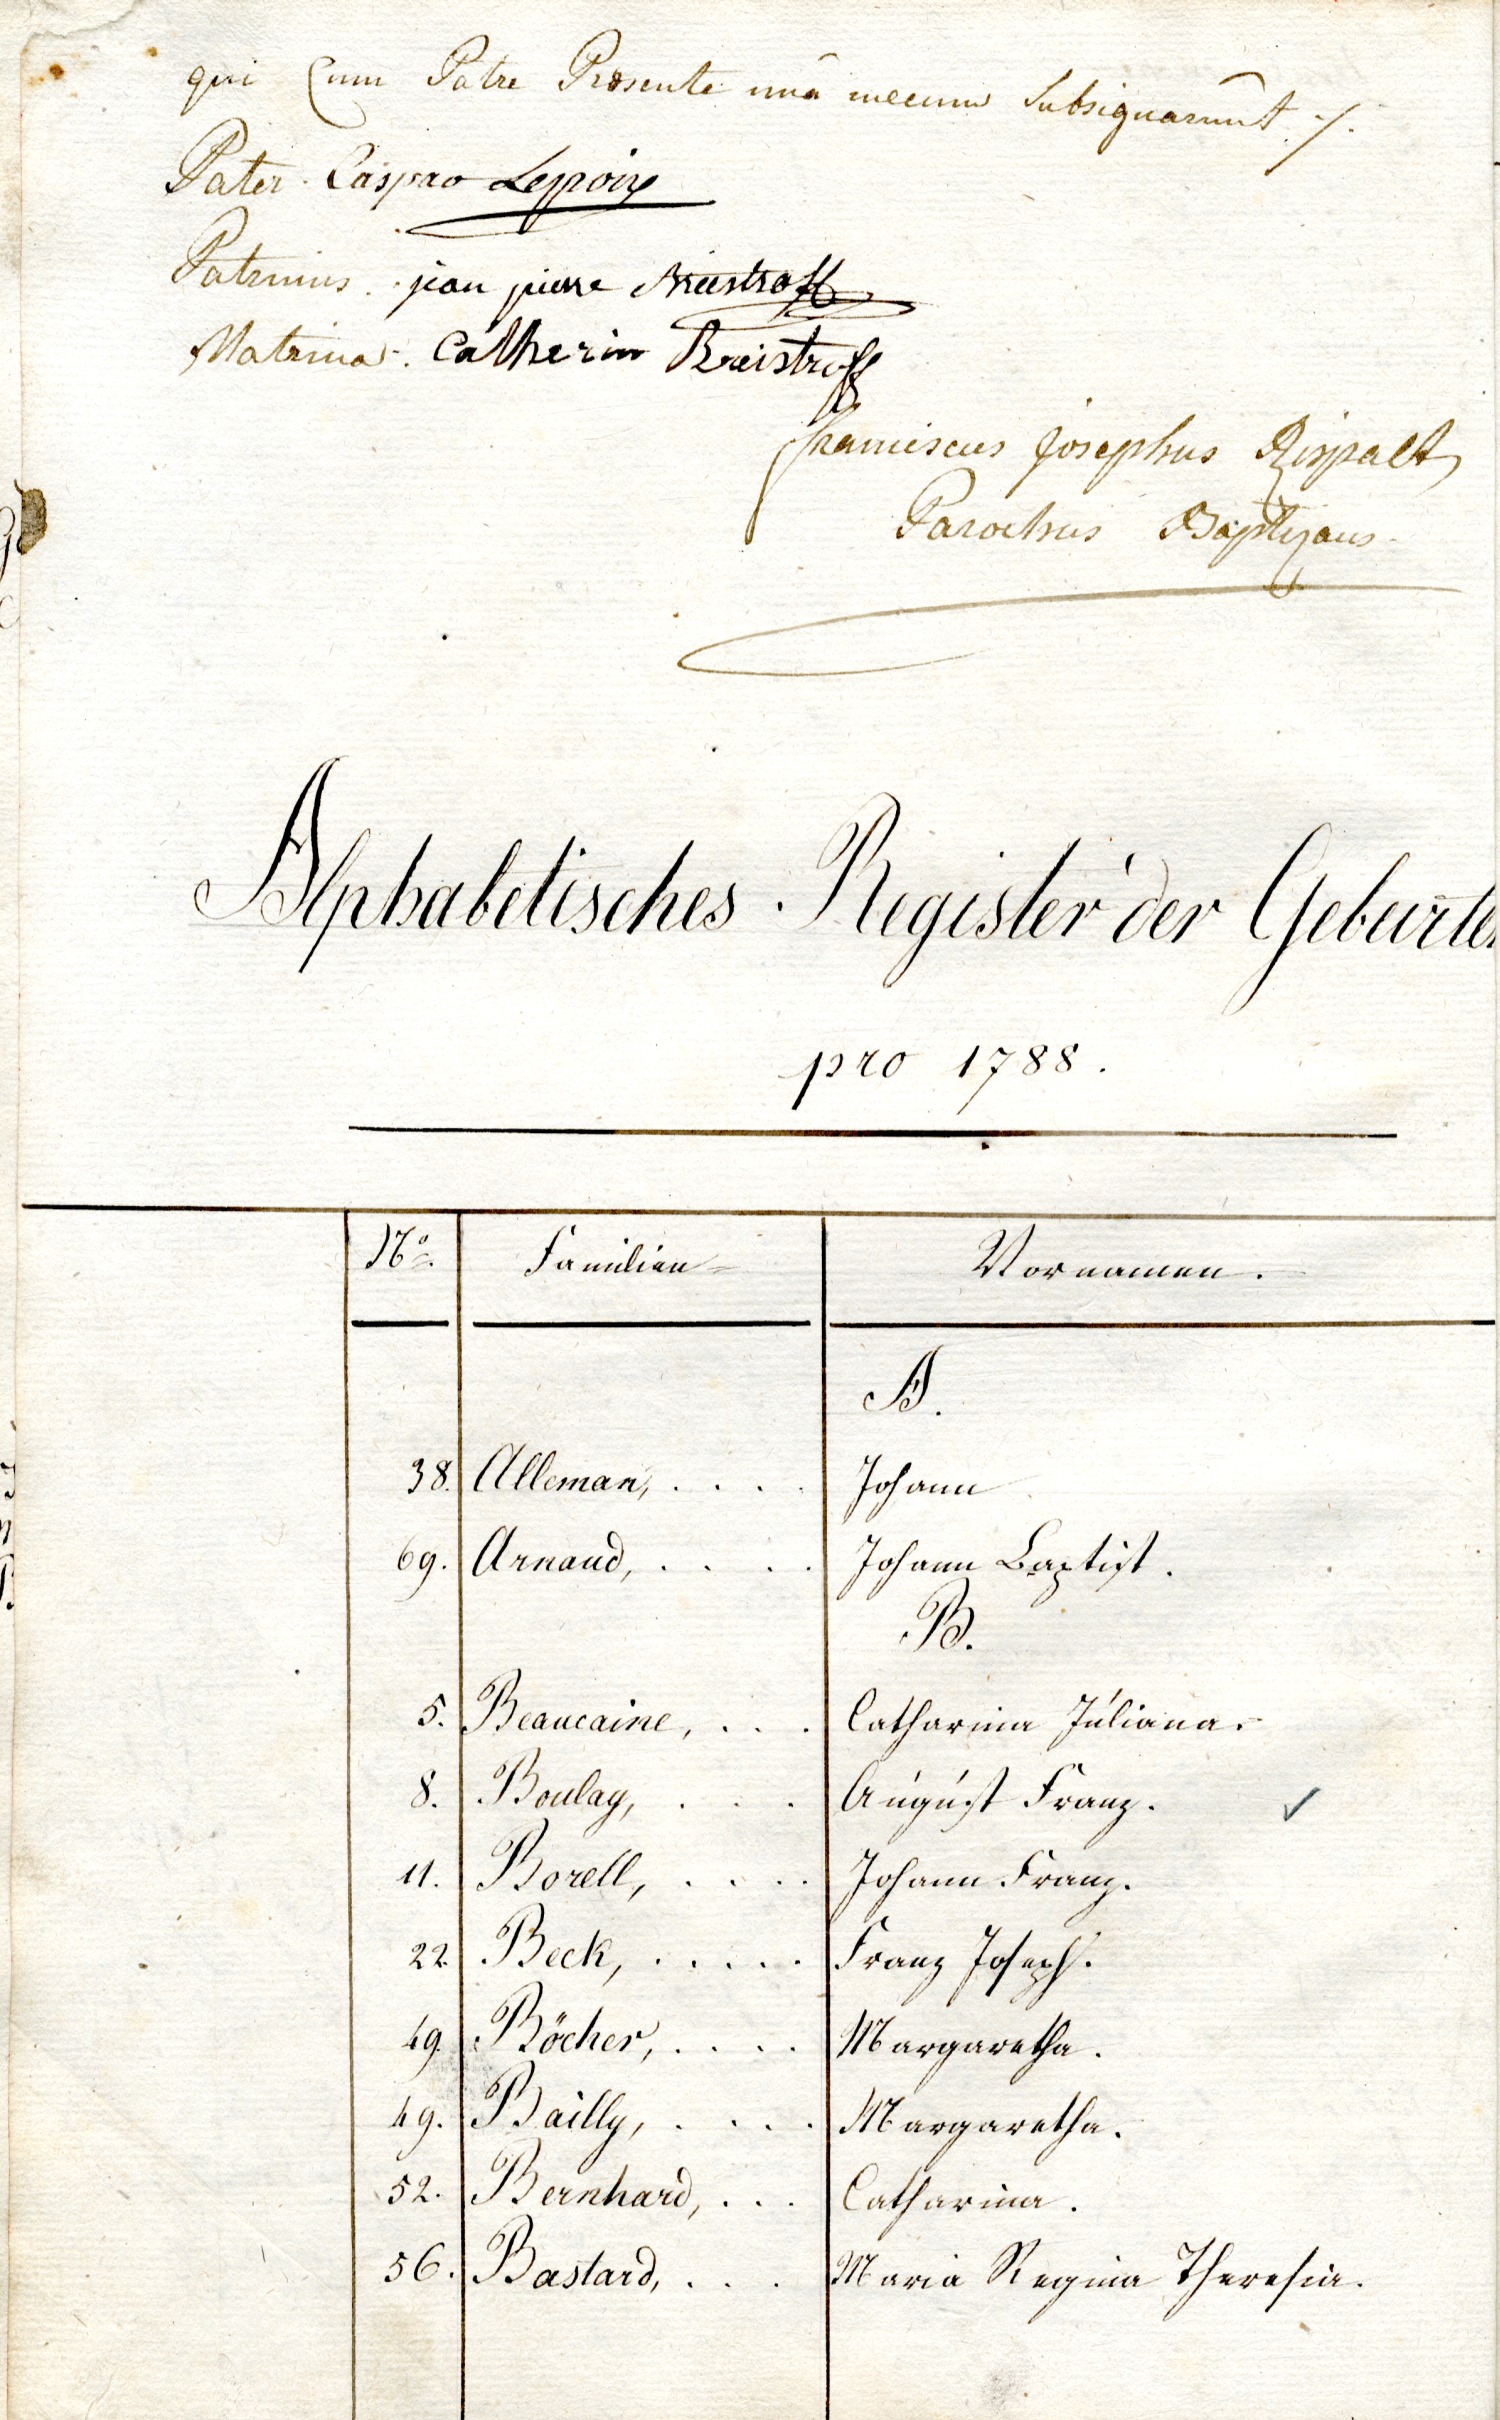 qui Cum Patre Presente unâ mecum Subsignarunt ./.
Pater Caspar Lepoix
Patrinus jean pierre Breistroff
Matrina. Catherin Breistroff
franciscus josephus Rispalt
Parochus Baptizans
Alphabetisches Register der Geburte
pro 1788.
No. Familien= Vornamen.
A.
38. Alleman, . . . . Johann
69. Arnaud, . . . . Johann Baptist.
B.
5. Beaucaine, . . . Catharina Juliana.
8. Boulay, . . . August Franz.
11. Borell, . . . . Johann Franz.
22. Beck, . . . . . Franz Joseph.
49. Böcher, . . . . Margaretha.
49. Bailly, . . . . Margaretha.
52. Bernhard, . . . Catharina.
56. Bastard, . . . Maria Regina Theresia.